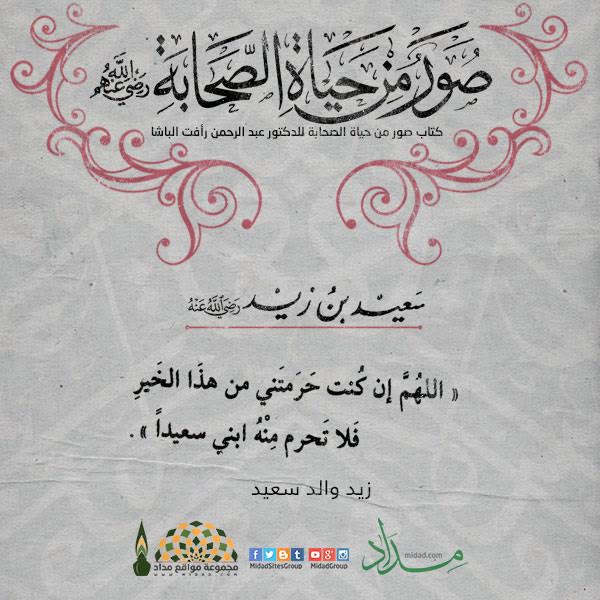 صُوَرٌ مِنْ حَيَاةِ الصَّحَابَةِ رَضِيَ اللَّهُ عَنْهُمْ
كتاب صور من حياة الصحابة للدكتور عبد الرحمن رأفت الباشا
سَعِيْد بنُ زيْد رَضِيَ اللَّهُ عَنْهُ
« اللهُمَّ إن كُنت حَرَمتَني من هذَا الخَيرِ
فَلا تَحرم مِنْهُ ابني سعيداً » .
زيد والد سعيد
مجموعة مواقع مداد
WWW.MIDAD.COM
MidadSitesGroup MidadGroup
midad.com
مداد